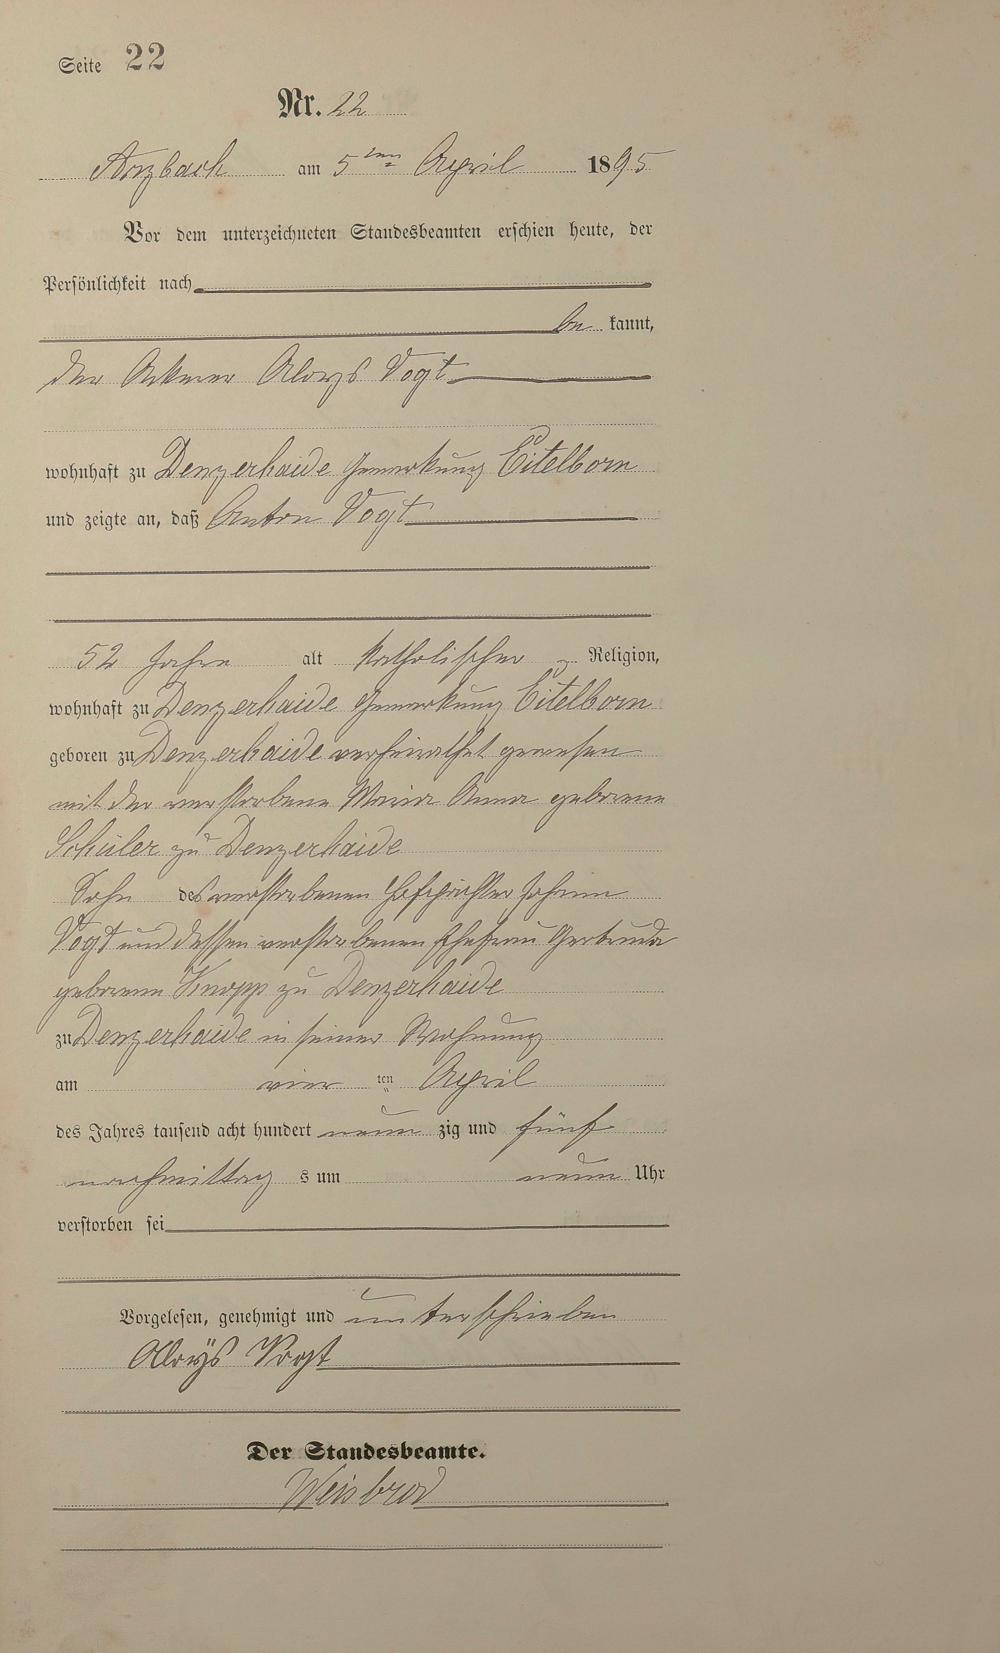 Seite 22
Nr. 22
Arzbach am 5ten April 1895
Vor dem unterzeichneten Standesbeamten erschien heute, der
Persönlichkeit nach
be kannt,
der Ackerer Aloys Vogt
wohnhaft zu Denzerhaide Gemarkung Eitelborn
und zeigte an, daß Anton Vogt
52 Jahre alt katholischer Religion,
wohnhaft zu Denzerhaide Gemarkung Eitelborn
geboren zu Denzerhaide verheirathet gewesen
mit der verstorbene Maria Anna geborene
Schüler zu Denzerhaide
Sohn des verstorbenen Hofpächter Johann
Vogt und dessen verstorbenen Ehefrau Gertruda
geborene Knopp zu Denzerhaide
zu Denzerhaide in seiner Wohnung
am vier ten April
des Jahres tausend acht hundert neun zig und fünf
nachmittag s um neun Uhr
verstorben sei
Vorgelesen, genehmigt und unterschrieben
Aloÿs Vogt
Der Standesbeamte.
Weisbrod